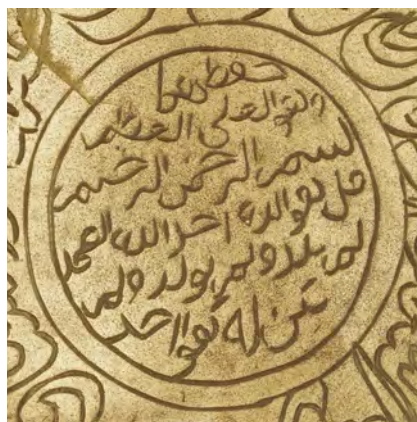 حفظهما
وهو العلي العظيم
بسم الرحمن الرحيم
قل هو الله احد الله الصمد
لم يلد ولم يولد ولم
يكن له كفوا احد